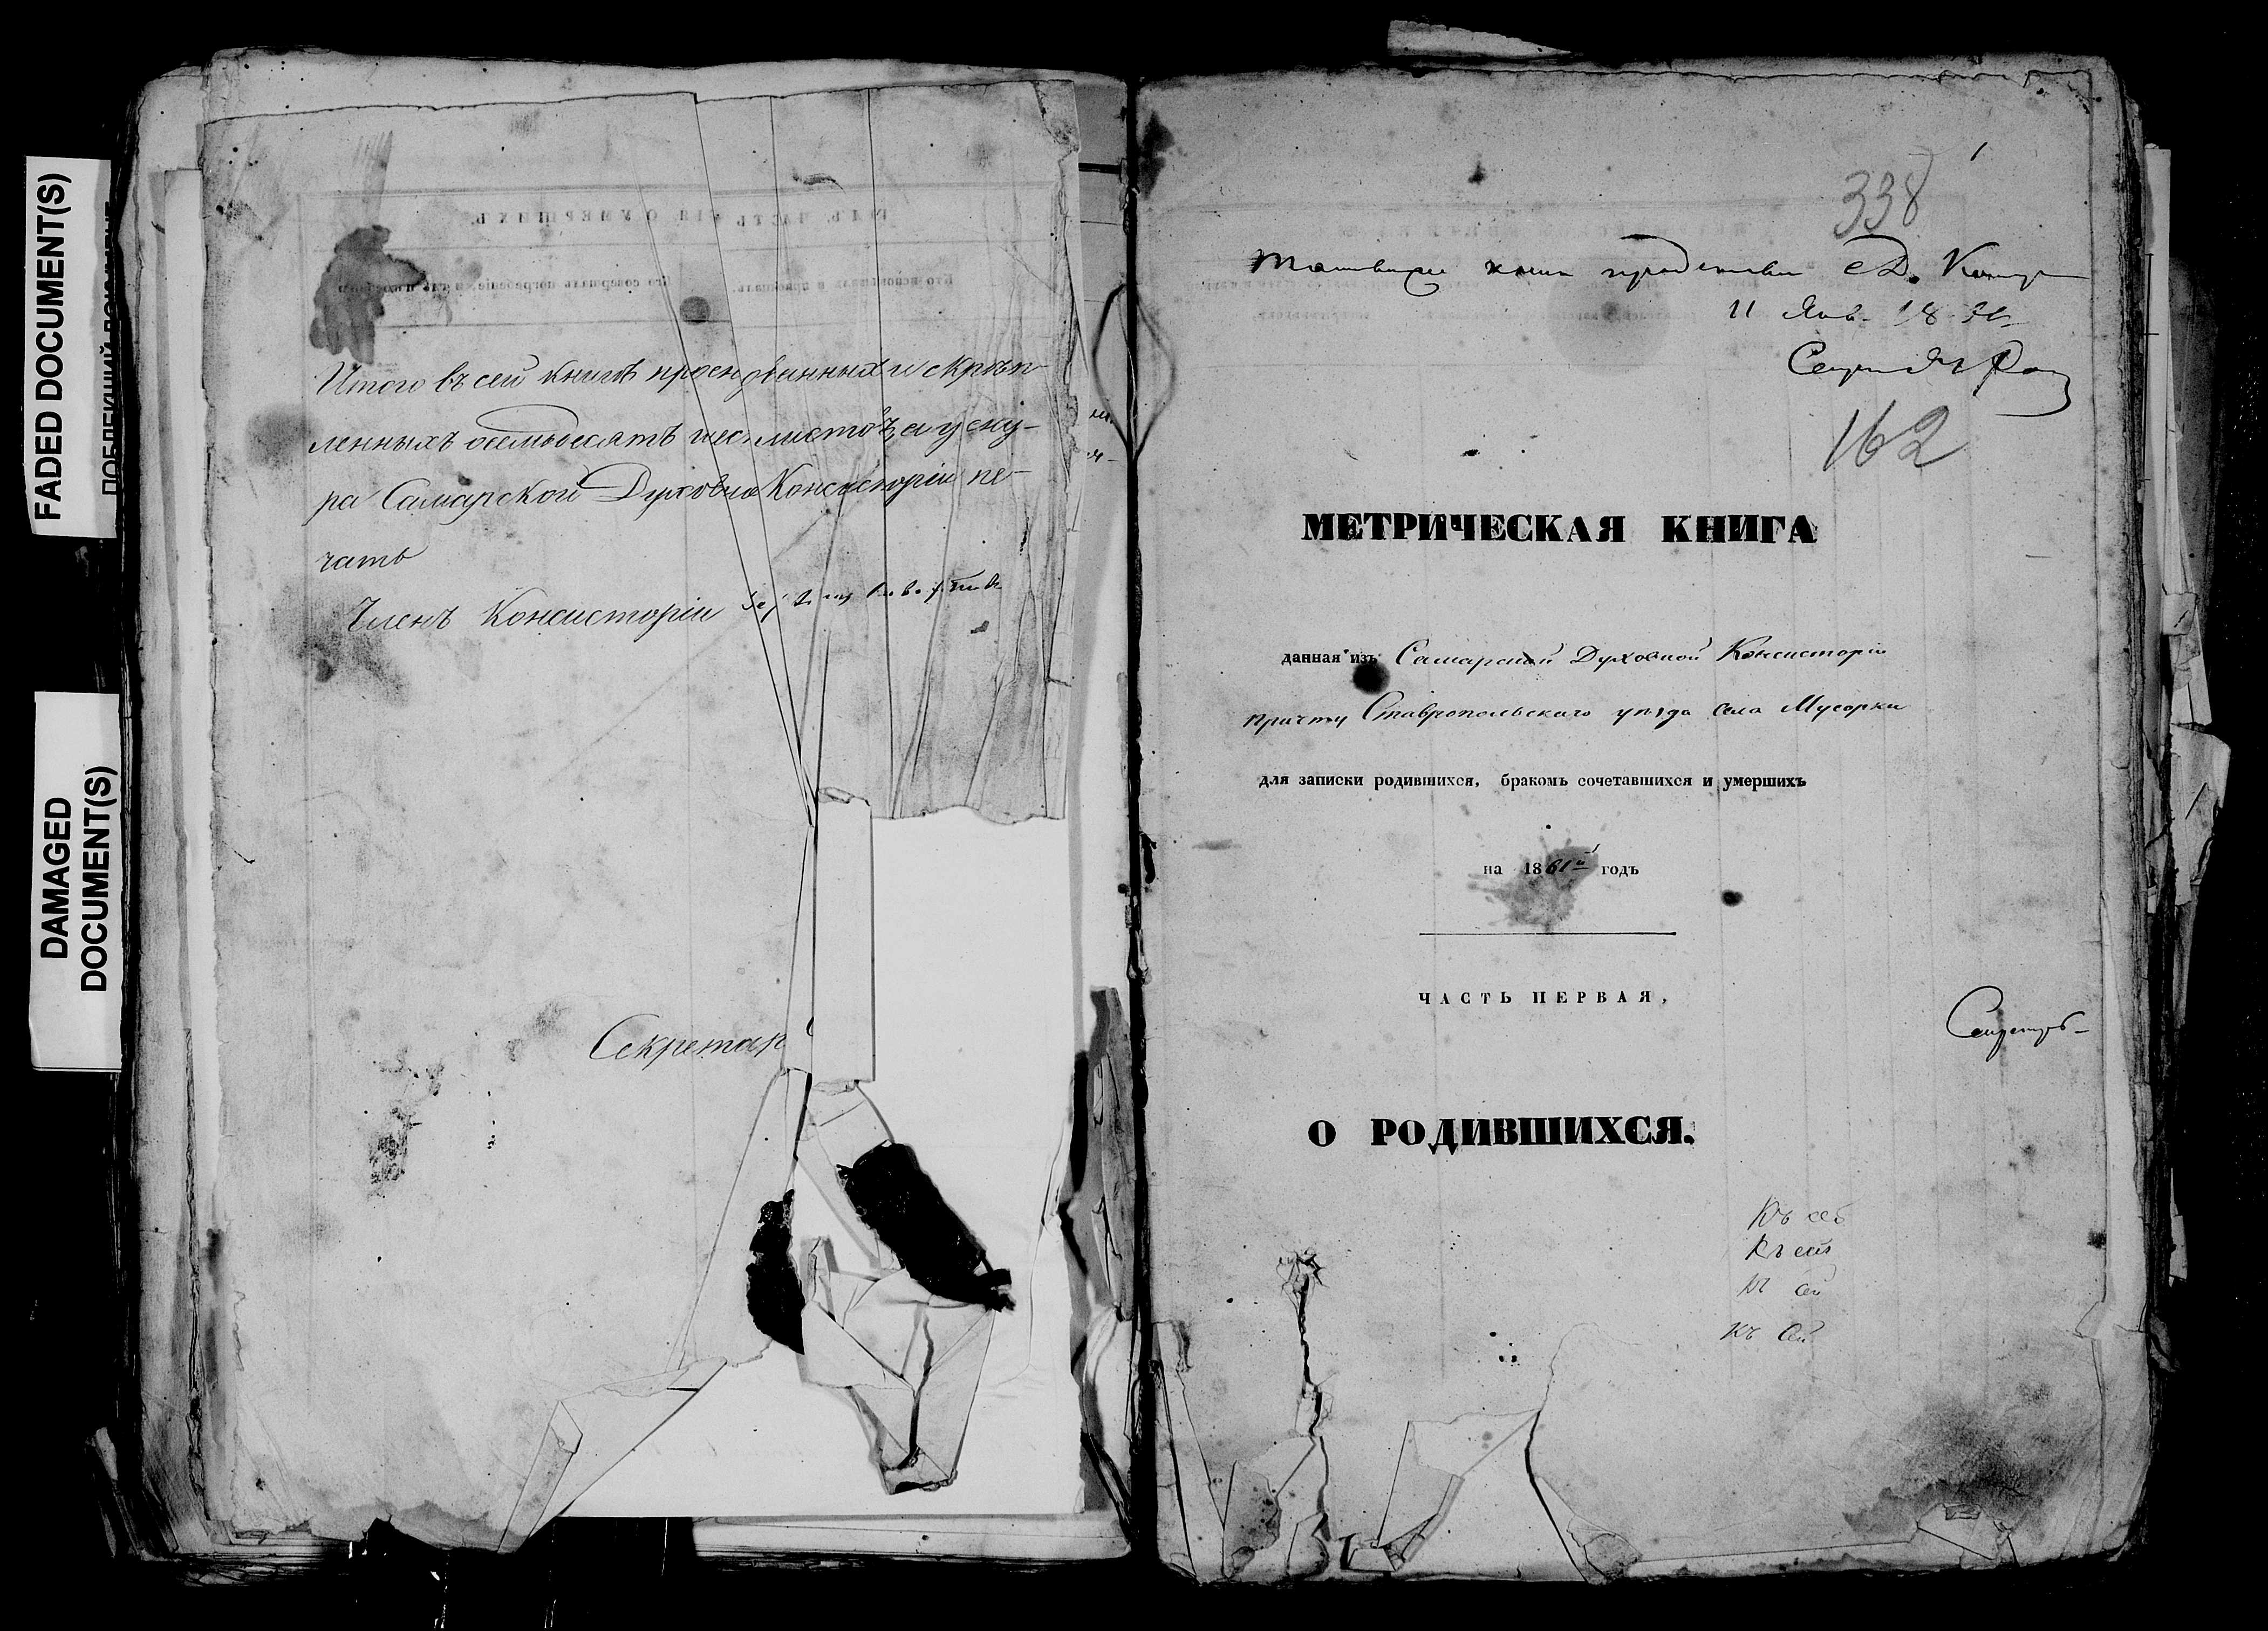 FADED DOCUMENT(S)
DAMAGED
DOCUMENT(S)
Итого въ сей книгѣ прошнурованныхъ и скрѣп
ленныхъ осемьдесятъ шес листовъ, а у сну-
ра Самарской Духовно Консисторіи пе-
чать
Членъ Консисторіи
Секретар
1
338
11 Янв. 18
162
МЕТРИЧЕСКАЯ КНИГА
данная изъ Самарской Духовной Консисторіи
причту Ставропольскаго уѣзда села Мусорки
для записки родившихся, бракомъ сочетавшихся и умершихъ
на 1861й годъ
ЧАСТЬ ПЕРВАЯ,
Секретарь
О РОДИВШИХСЯ.
Къ сей
Къ сей
Къ сей
Къ сей